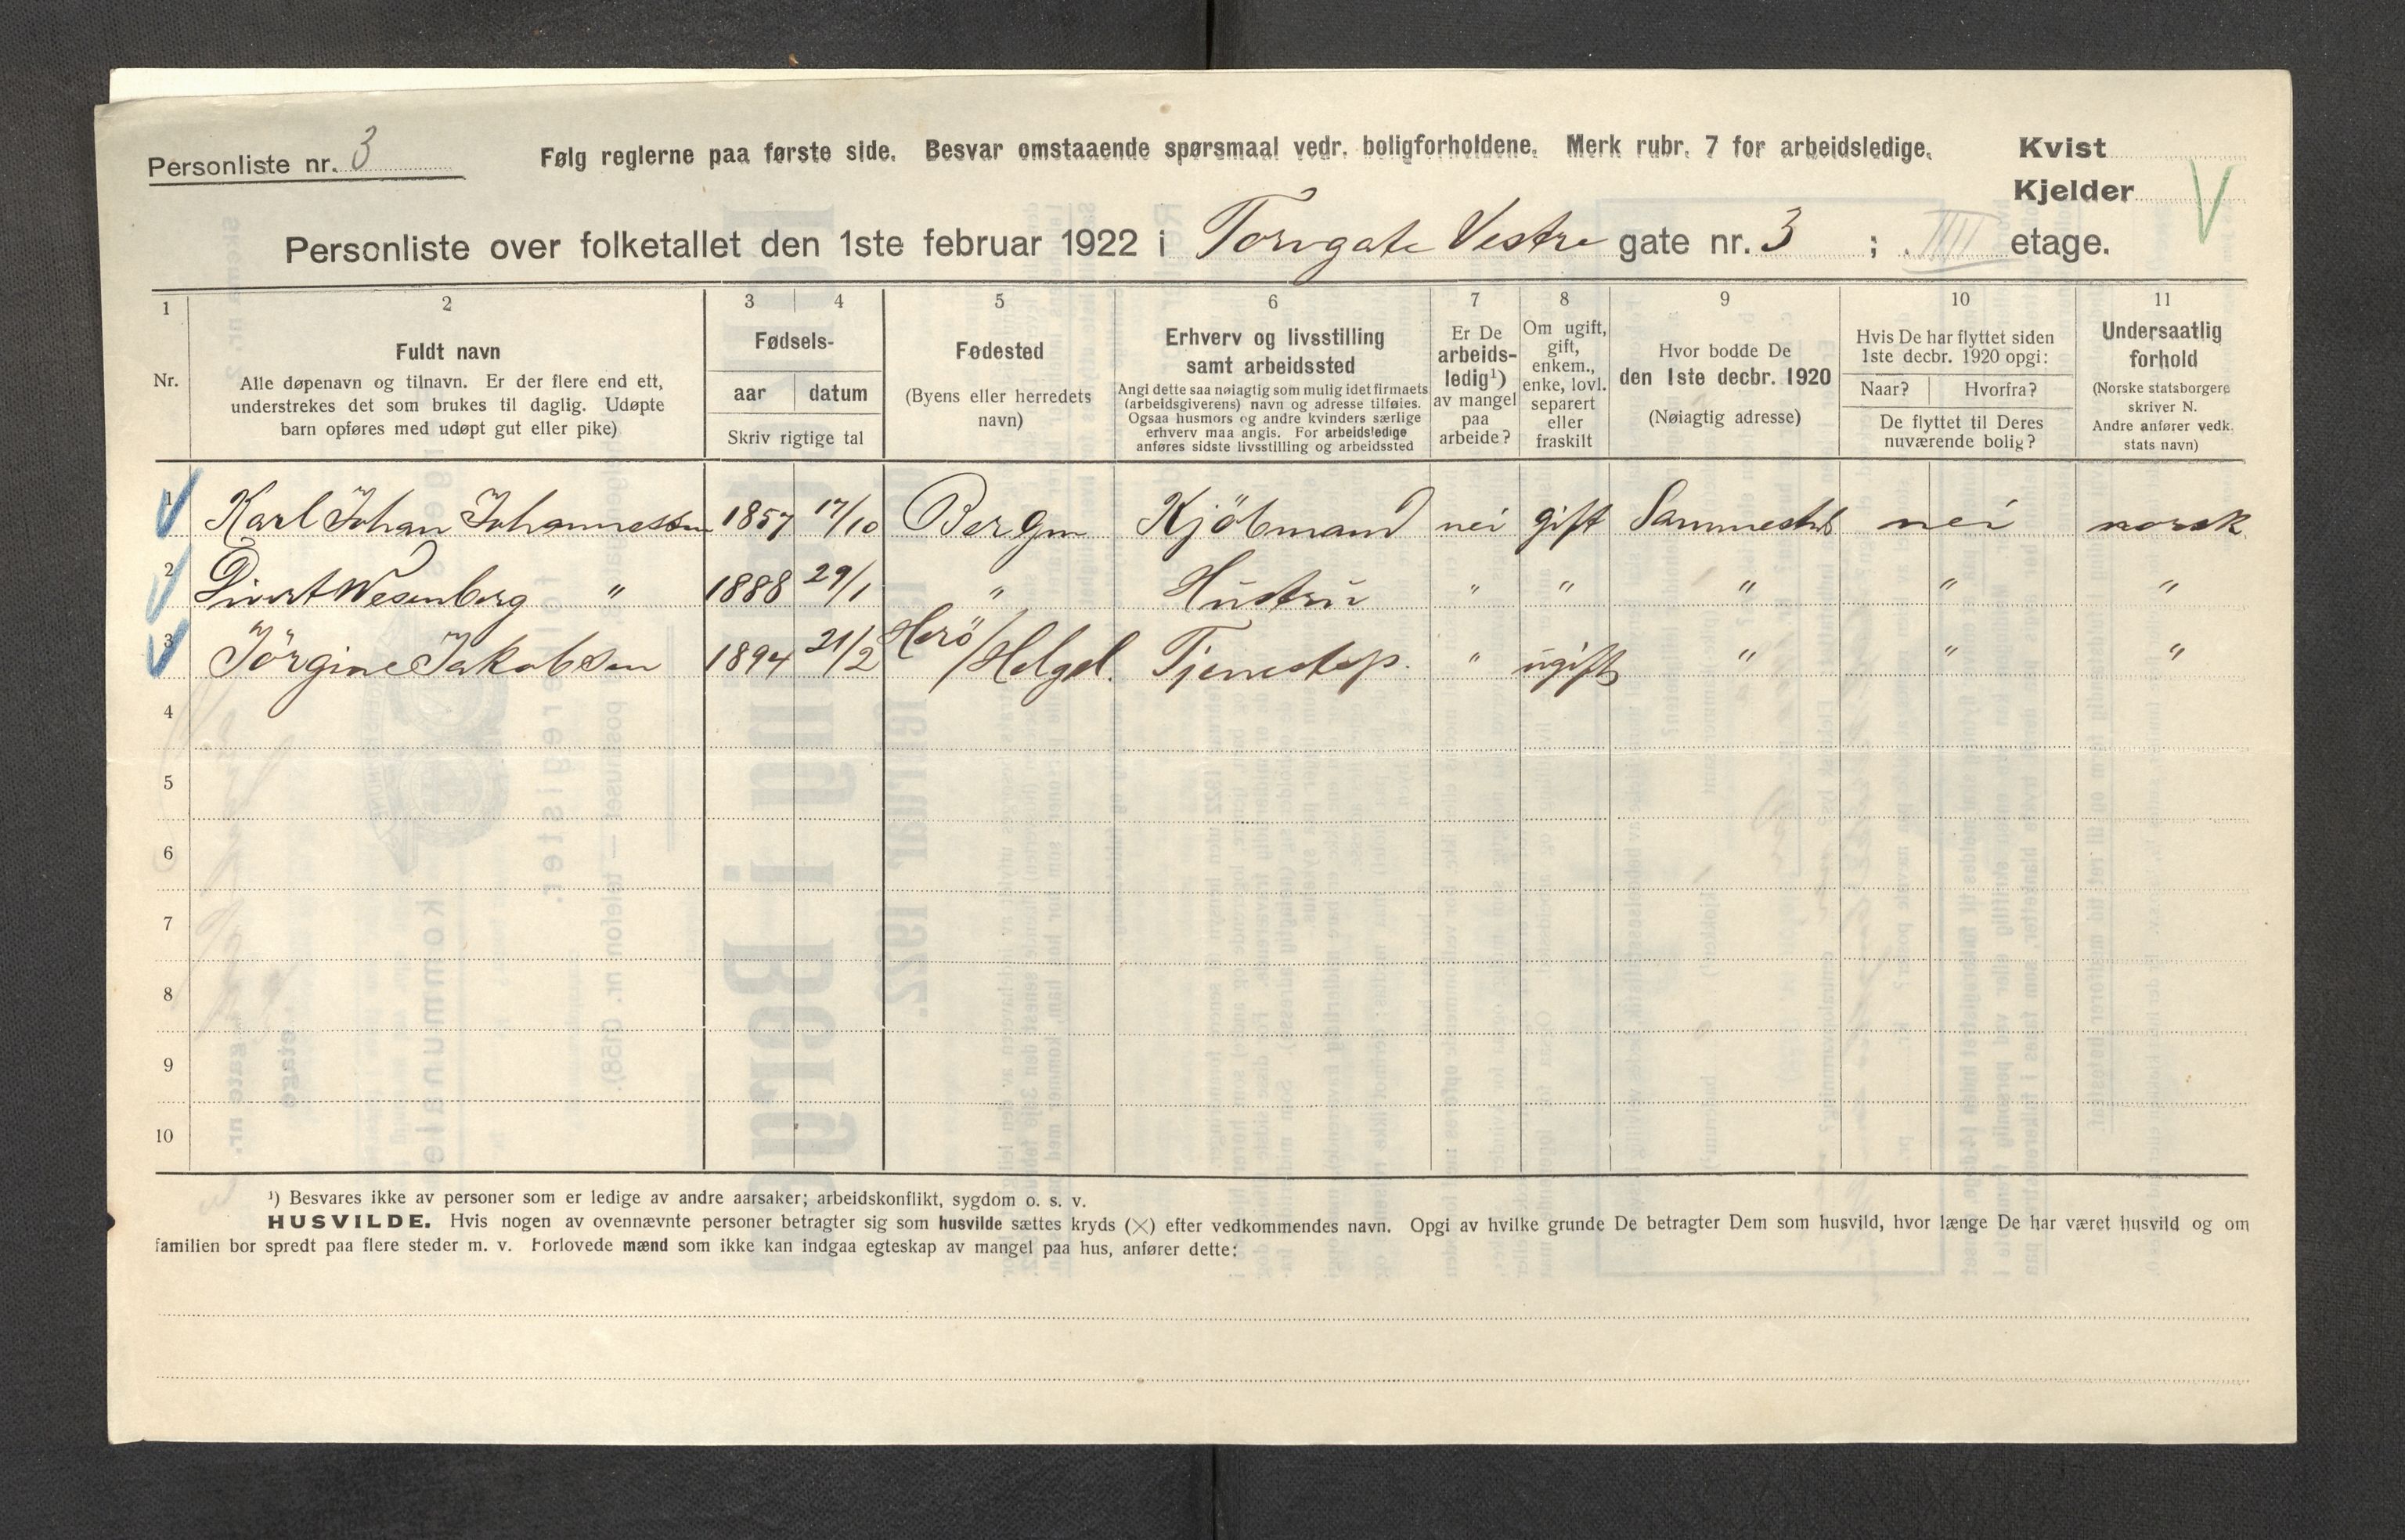 Personliste nr. 3
Følg reglerne paa første side. Besvar omstaaende spørsmaal vedr. boligforholdene. Merk rubr. 7 for arbeidsledige.
Kvist
Kjelder
Personliste over folketallet den 1ste februar 1922 i Torvgate Vestre gate nr. 3 ; IIII etage.
1 2 3 4 5 6 7 8 9 10 11
Nr.
Fuldt navn
Alle døpenavn og tilnavn. Er der flere end ett,
understrekes det som brukes til daglig. Udøpte
barn opføres med udøpt gut eller pike)
Fødsels-
aar datum
Skriv rigtige tal
Fødested
(Byens eller herredets
navn)
Erhverv og livsstilling
samt arbeidssted
Angi dette saa nøiagtig som mulig idet firmaets
(arbeidsgiverens) navn og adresse tilføies.
Ogsaa husmors og andre kvinders særlige
erhverv maa angis. For arbeidsledige
anføres sidste livsstilling og arbeidssted
Er De
arbeids-
ledig¹)
av mangel
paa
arbeide?
Om ugift,
gift,
enkem.,
enke, lovl.
separert
eller
fraskilt
Hvor bodde De
den 1ste decbr. 1920
(Nøiagtig adresse)
Hvis De har flyttet siden
1ste decbr. 1920 opgi:
Naar? Hvorfra?
De flyttet til Deres
nuværende bolig?
Undersaatlig
forhold
(Norske statsborgere
skriver N.
Andre anfører vedk.
stats navn)
1 Karl Johan Johannessen 1857 17/10 Bergen Kjöbmand nei gift Sammested nei norsk
2 Wesenberg " 1888 29/1 " Hustru " " " " "
3 Jörgine Jakobsen 1894 21/2 Herö/Helgel. Tjenestep. " ugift " " "
4
5
6
7
8
9
10
¹) Besvares ikke av personer som er ledige av andre aarsaker; arbeidskonflikt, sygdom o. s. v.
HUSVILDE. Hvis nogen av ovennævnte personer betragter sig som husvilde sættes kryds (×) efter vedkommendes navn. Opgi av hvilke grunde De betragter Dem som husvild, hvor længe De har været husvild og om
familien bor spredt paa flere steder m. v. Forlovede mænd som ikke kan indgaa egteskap av mangel paa hus, anfører dette: